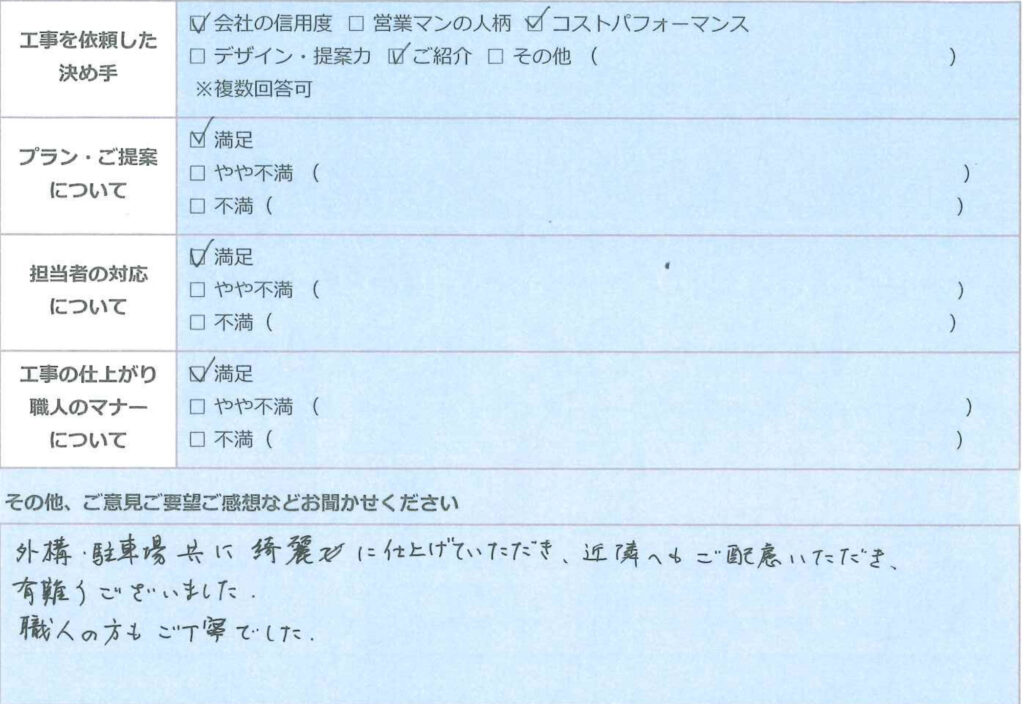 工事を依頼した
決め手
☑ 会社の信用度 □ 営業マンの人柄 ☑ コストパフォーマンス
□ デザイン・提案力 ☑ ご紹介 □ その他 ( )
※複数回答可
プラン・ご提案
について
☑ 満足
□ やや不満 ( )
□ 不満 ( )
担当者の対応
について
☑ 満足
□ やや不満 ( )
□ 不満 ( )
工事の仕上がり
職人のマナー
について
☑ 満足
□ やや不満 ( )
□ 不満 ( )
その他、ご意見ご要望ご感想などお聞かせください
外構・駐車場 共に 綺麗に仕上げていただき、近隣へもご配慮いただき、
有難うございました.
職人の方も ご丁寧でした.